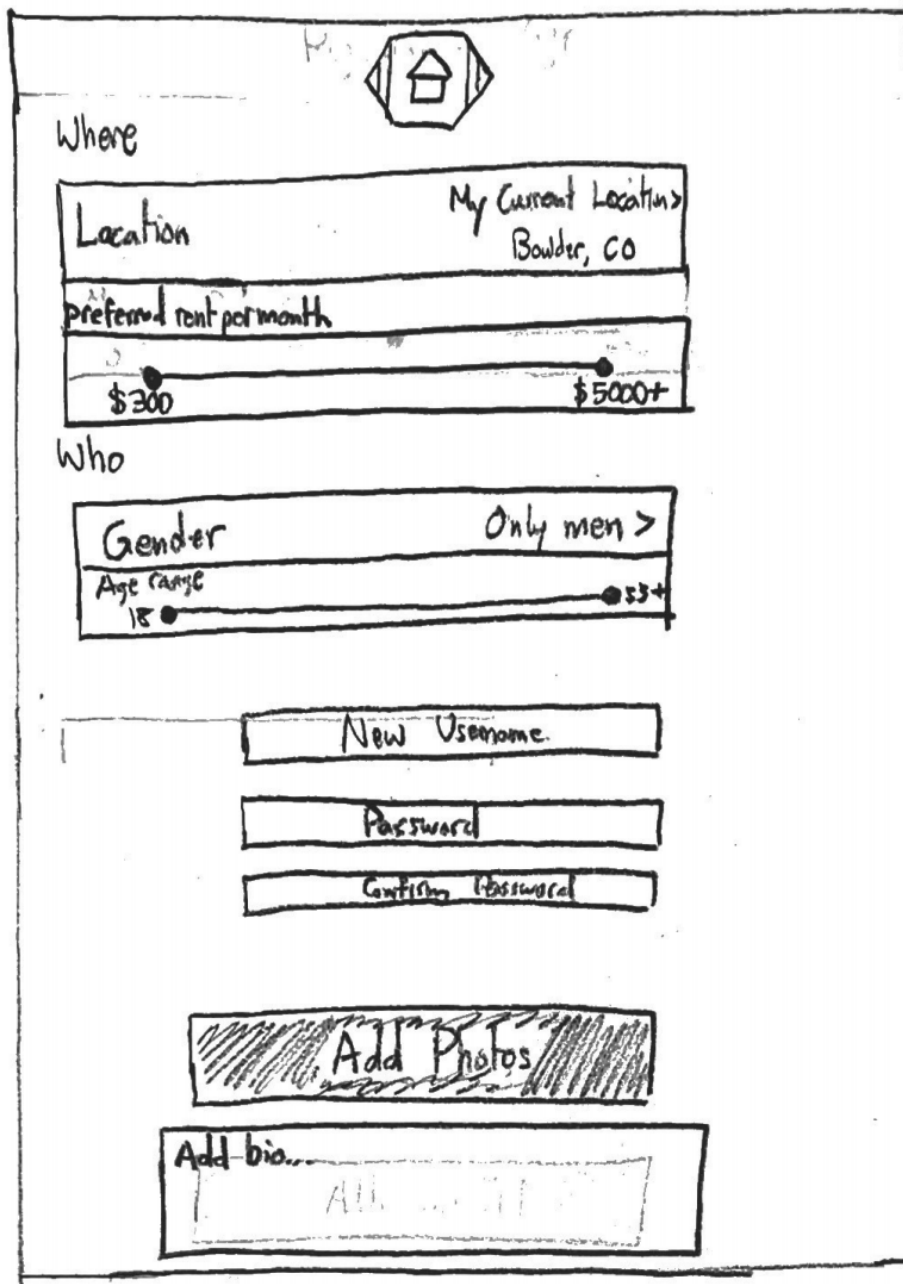 Where
Location
My Current Location>
Boulder, CO
preferred rent per month
$300
$5000+
Who
Gender
Only men >
Age range
18
53+
New Username
Password
Confirm Password
Add Photos
Add bio...